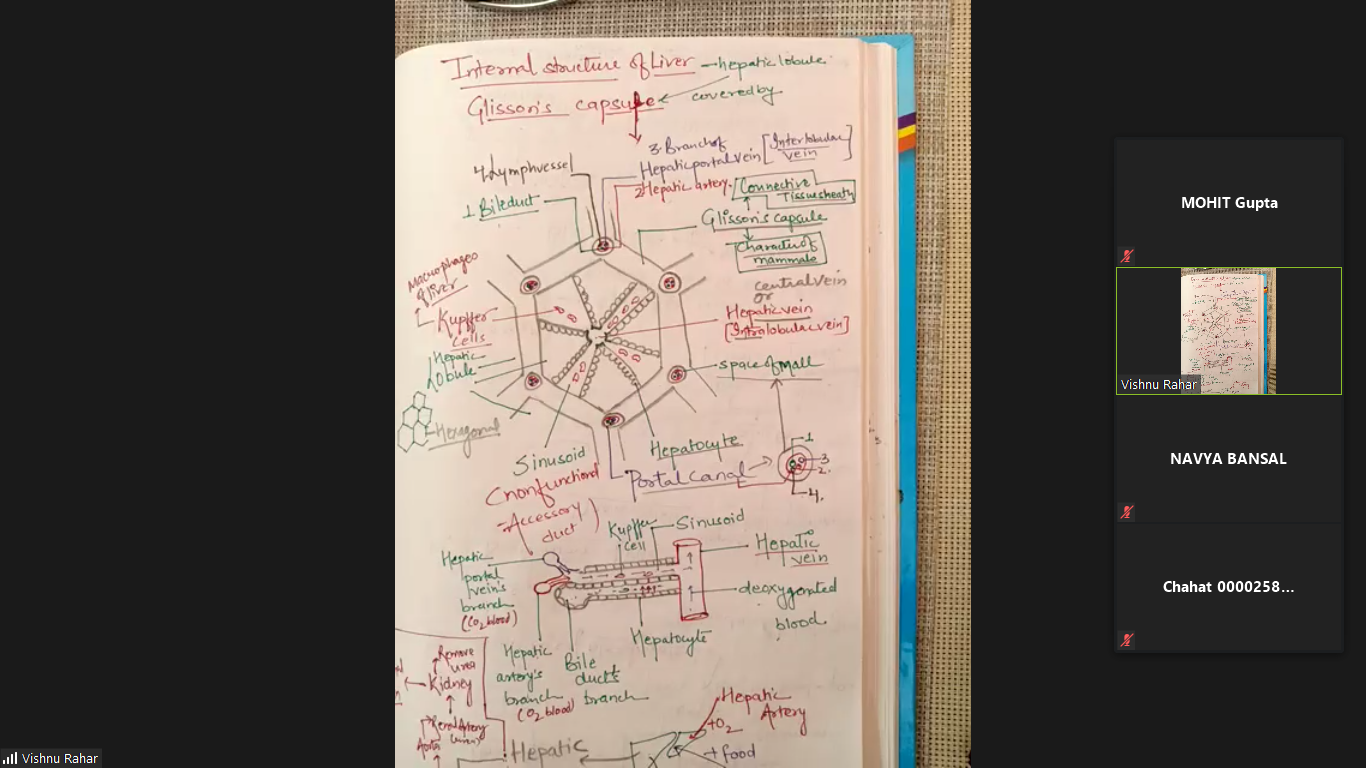 Internal structure of Liver → hepatic lobule
Glisson's capsule ← covered by
3. Branch of
Hepatic portal vein [Interlobular
vein]
4 Lymph vessel
2 Hepatic artery.
Connective
Tissue sheath
1 Bile duct
Glisson's capsule
Character of
mammals
Macrophages
of liver
central vein
or
Kupffer
cells
Hepatic vein
[Intralobular vein]
Hepatic
lobule
space of mall
Hexagonal
Sinusoid
Hepatocyte
Portal Canal
1
3
2.
4.
(nonfunctional
-Accessory
duct)
Kupffer
cell
Sinusoid
Hepatic
portal
vein's
branch
(CO2 blood)
Hepatic
vein
deoxygenated
blood.
Hepatocyte
Hepatic
artery's
branch
(O2 blood)
Bile
duct's
branch
Remove
urea
Kidney
Renal Artery
(urea)
Aorta
Hepatic
Artery
+O2
+ food
Hepatic
MOHIT Gupta
Vishnu Rahar
NAVYA BANSAL
Chahat 0000258...
Vishnu Rahar